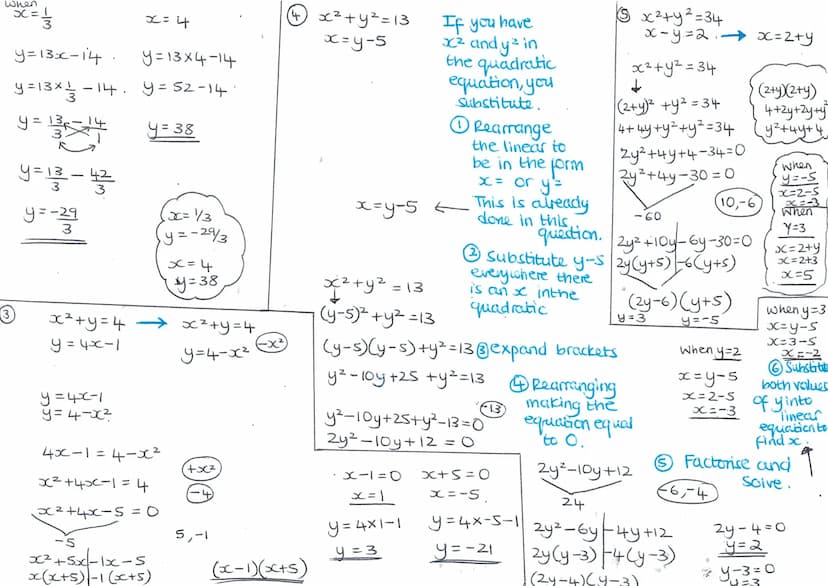 when
x=1/3
x=4
y=13x-14
y=13×4-14
y=13×1/3-14
y=52-14
y=13/3-14/1
y=38
y=13/3-42/3
y=-29/3
x=1/3
y=-29/3
x=4
y=38
④ x²+y²=13
x=y-5
If you have
x² and y² in
the quadratic
equation, you
substitute.
① Rearrange
the linear to
be in the form
x= or y=
x=y-5 ←
This is already
done in this
question.
② Substitute y-5
everywhere there
is an x in the
quadratic
x²+y²=13
(y-5)²+y²=13
(y-5)(y-5)+y²=13
③ expand brackets
y²-10y+25+y²=13
-13
y²-10y+25+y²-13=0
2y²-10y+12=0
④ Rearranging
making the
equation equal
to 0.
2y²-10y+12
24
⑤ Factorise and
solve.
-6,-4
2y²-6y-4y+12
2y(y-3)-4(y-3)
(2y-4)(y-3)
2y-4=0
y=2
y-3=0
y=3
when y=2
x=y-5
x=2-5
x=-3
when y=3
x=y-5
x=3-5
x=-2
⑥ Substitute
both values
of y into
linear
equation to
find x.
⑤ x²+y²=34
x-y=2 → x=2+y
x²+y²=34
(2+y)²+y²=34
4+4y+y²+y²=34
2y²+4y+4-34=0
2y²+4y-30=0
-60
10,-6
2y²+10y-6y-30=0
2y(y+5)-6(y+5)
(2y-6)(y+5)
y=3 y=-5
(2+y)(2+y)
4+2y+2y+y²
y²+4y+4
when
y=-5
x=2-5
x=-3
when
y=3
x=2+y
x=2+3
x=5
③ x²+y=4 → x²+y=4
y=4x-1
y=4-x²
-x²
y=4x-1
y=4-x²
4x-1=4-x²
+x²
x²+4x-1=4
-4
x²+4x-5=0
-5
5,-1
x²+5x-1x-5
x(x+5)-1(x+5)
(x-1)(x+5)
x-1=0 x+5=0
x=1 x=-5.
y=4×1-1 y=4×-5-1
y=3 y=-21